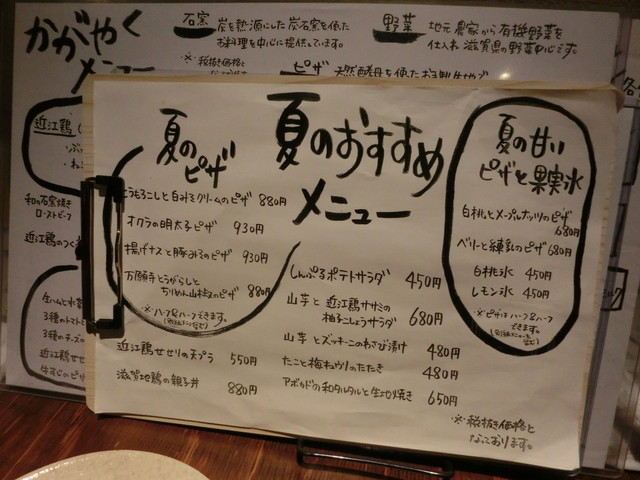 かがやく
メニュー
石窯 炭を熱源にした炭石窯を使た
お料理を中心に提供しています。
※税抜き価格と
野菜 地元農家から有機野菜を
仕入れ滋賀県の野菜中心です。
ピザ 天然酵母を使た
近江鶏
和の石窯焼き
ローストビーフ
近江鶏のつく
生ハムと水
3種のトマト
3種のチーズ
近江鶏せせ
牛すじのピ
夏のおすすめ
メニュー
夏の
ピザ
とうもろこしと白みそクリームのピザ 880円
オクラの明太子ピザ 930円
揚げナスと豚みそのピザ 930円
万願寺とうがらしと
ちりめん山椒のピザ 880円
※ハーフ&ハーフできます。
近江鶏せせりの天プラ 550円
滋賀地鶏の親子丼 880円
しんぷるポテトサラダ 450円
山芋と近江鶏ササミの
柚子こしょうサラダ 680円
山芋とズッキーニのわさび漬け 480円
たこと梅キュウリのたたき 480円
アボカドの和タルタルと生地焼き 650円
夏の甘い
ピザと果実氷
白桃とメープルナッツのピザ
680円
ベリーと練乳のピザ 680円
白桃氷 450円
レモン氷 450円
※ピザはハーフ&ハーフ
できます。
※税抜き価格と
なっております。